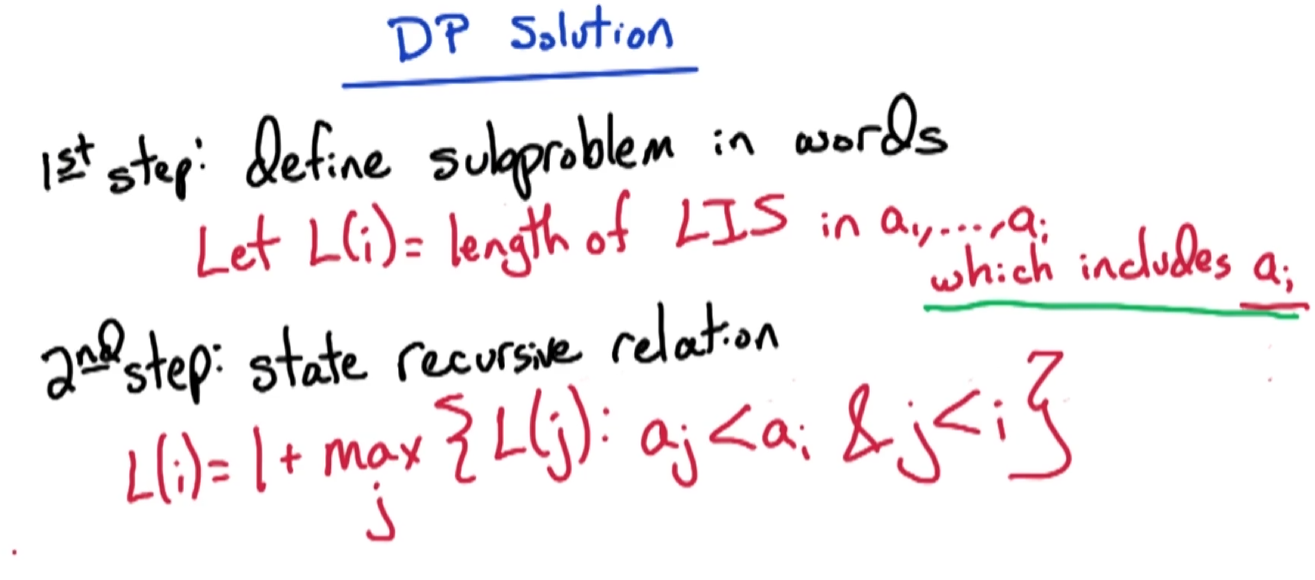 DP Solution
1st step: define subproblem in words
Let L(i)= length of LIS in a₁,...,aᵢ
which includes aᵢ
2nd step: state recursive relation
L(i)= 1 + max {L(j): aⱼ<aᵢ & j<i}
j